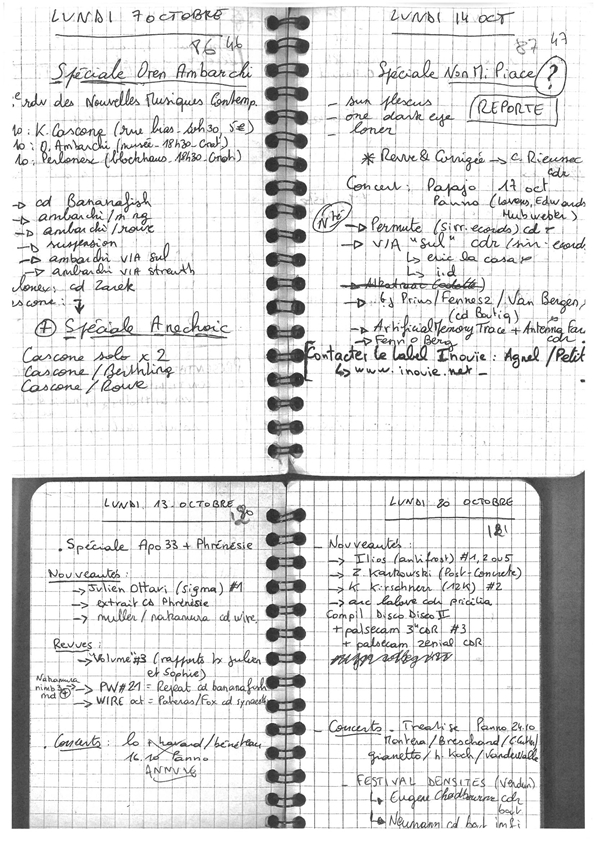 LUNDI 7 OCTOBRE
86 46
Spéciale Oren Ambarchi
e rdv des Nouvelles Musiques Contemp.
10: K. Cascone (rue bias - 20h30, 5€)
10: O. Ambarchi (musée - 18h30 - Gratt)
10: Perlonex (blockhaus - 18h30 - Gratt)
-> cd Bananafish
-> ambarchi / m ng
-> ambarchi / rowe
-> suspension
-> ambarchi VIA sul
-> ambarchi VIA streuth
lonex: cd Zarek
ascone:
+ Spéciale Anechoic
Cascone solo x 2
Cascone / Berthling
Cascone / Rowe
LUNDI 14 OCT
87 47
Spéciale Non Mi Piace ?
REPORTE
- sun plexus
- one dark eye
- loner
* Revue & Corrigée -> c. Rieussec
cdr
Concert: Papajo 17 oct
Panno (Lovens, Edwards
Hubweber)
Nté
-> Permute (Sirr.ecords) cd
-> V/A "Sul" cdr / sirr-ecords
↳ eric la casa
↳ i.d
-> Gj Prins / Fennesz / Van Bergen,
(cd Boutig)
-> Artificial Memory Trace + Antenna Farm
cdr
-> Fenn O Berg
Contacter le label Inovie: Agnel / Petit
↳ www.inovie.net -
LUNDI 13 - OCTOBRE
120
. Spéciale Apo 33 + Phrénésie
Nouveautés:
-> Julien Ottavi (sigma) #1
-> extrait CD Phrénésie
-> muller / nakamura cd wire,
Revues:
-> "Volume" #3 (rapports by julien
et Sophie)
Nakamura
nimb 3
md +
-> PW #21 = Repeat cd bananafish
-> WIRE oct = Pateras/Fox cd synaesth
. Concerts: lo Ahavard / bénéteau
16.10 Panno
ANNULÉ
LUNDI 20 OCTOBRE
121
- Nouveautés:
-> Ilios (antifrost) #1, 2 ou 5
-> Z. Karkowski (Post-Concrete)
-> K Kirschner (12K) #2
-> arc lalove cdr pricilia
Compil Disco Disco II
+ palsecam 3" CDR #3
+ palsecam zenial CDR
- Concerts - Treatise Panno 24.10
Montera / Breschand /
gianetto / h. Koch / Vandewalle
- FESTIVAL DENSITES (Verdun)
↳ Eugene Chadbourne cdr
bait
↳ Neumann cd bait imfi